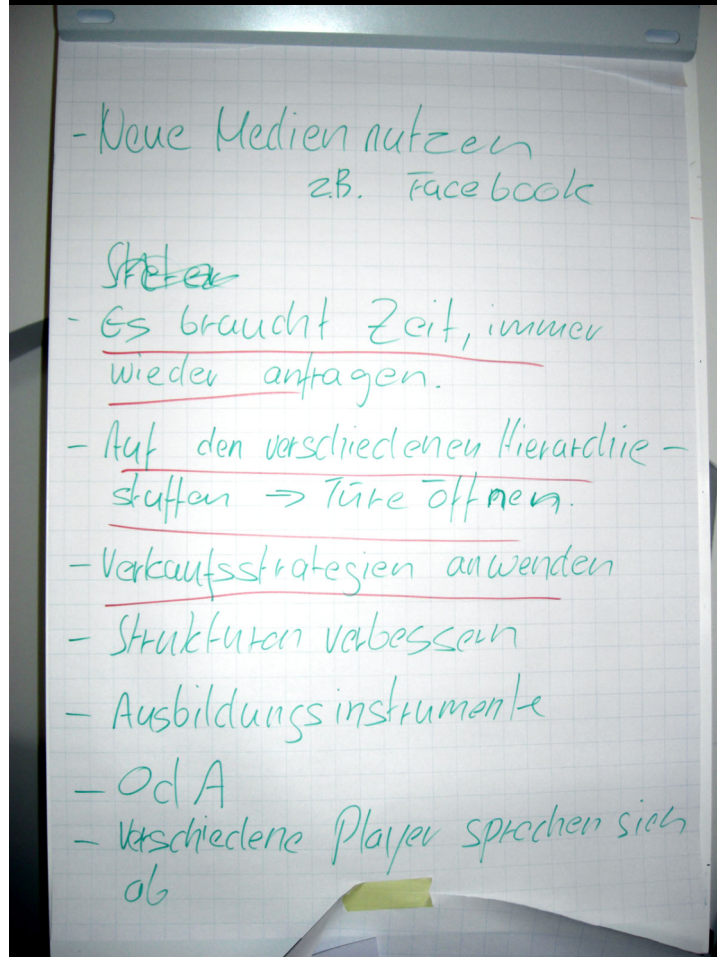 - Neue Medien nutzen
z.B. Facebook
- Es braucht Zeit, immer
wieder anfragen.
- Auf den verschiedenen Hierarchie -
stuffen ⇒ Türe öffnen.
- Verkaufsstrategien anwenden
- Strukturen verbessern
- Ausbildungsinstrumente
- OdA
- Verschiedene Player sprechen sich
ab